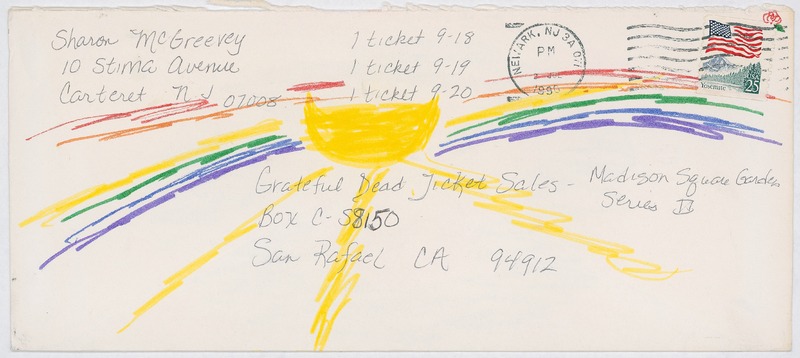 Sharon McGreevey 1 ticket 9-18
10 Stima Avenue 1 ticket 9-19
Carteret NJ 07008 1 ticket 9-20
NEWARK, NJ
PM
Yosemite 25
Grateful Dead Ticket Sales - Madison Square Garden
Series II
Box C-S8150
San Rafael CA 94912